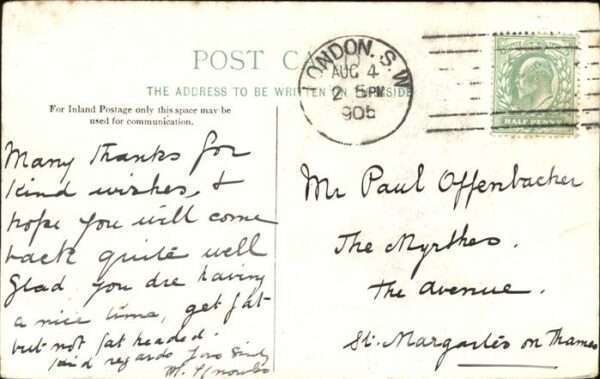 POST CA
LONDON. S.W
AUG 4
2 5PM
905
HALF PENNY
THE ADDRESS TO BE WRITTEN ON THIS SIDE
For Inland Postage only this space may be
used for communication.
Many thanks for
kind wishes, &
hope you will come
back quite well
Glad you are having
a nice time, get fat
but not fat headed.
Kind regards Yrs Sincly
M.
Mr Paul Offenbacher
The Myrthes.
The avenue.
St. Margartes on Thames